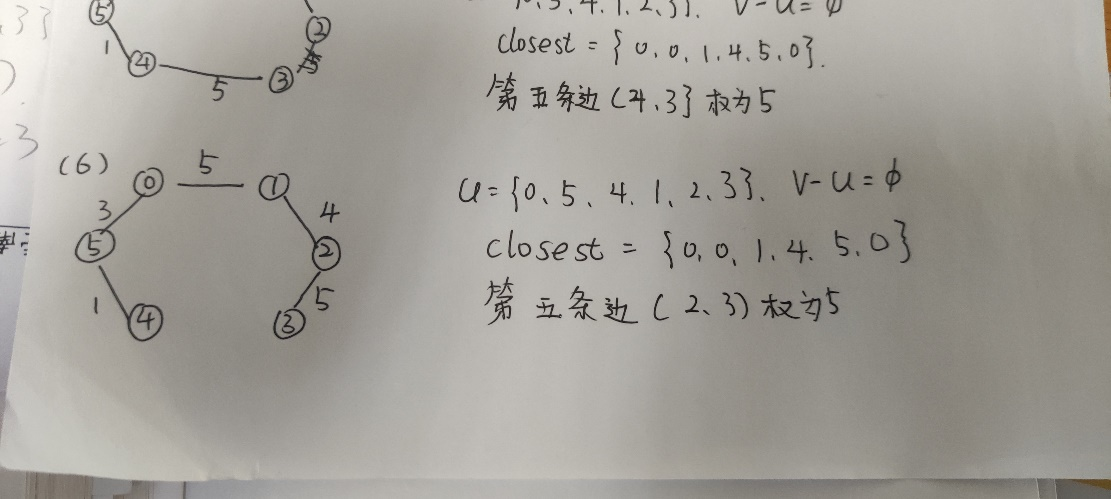 ⑤
②
1
④
5
③
V-U=φ
closest = { 0, 0, 1, 4, 5, 0}.
第五条边 (4、3} 权为5
(6)
⓪ 5 ①
3
4
⑤
②
1
5
④
③
U={0、5、4、1、2、3}、 V-U=φ
closest = {0, 0, 1, 4、5, 0}
第五条边 (2、3) 权为5